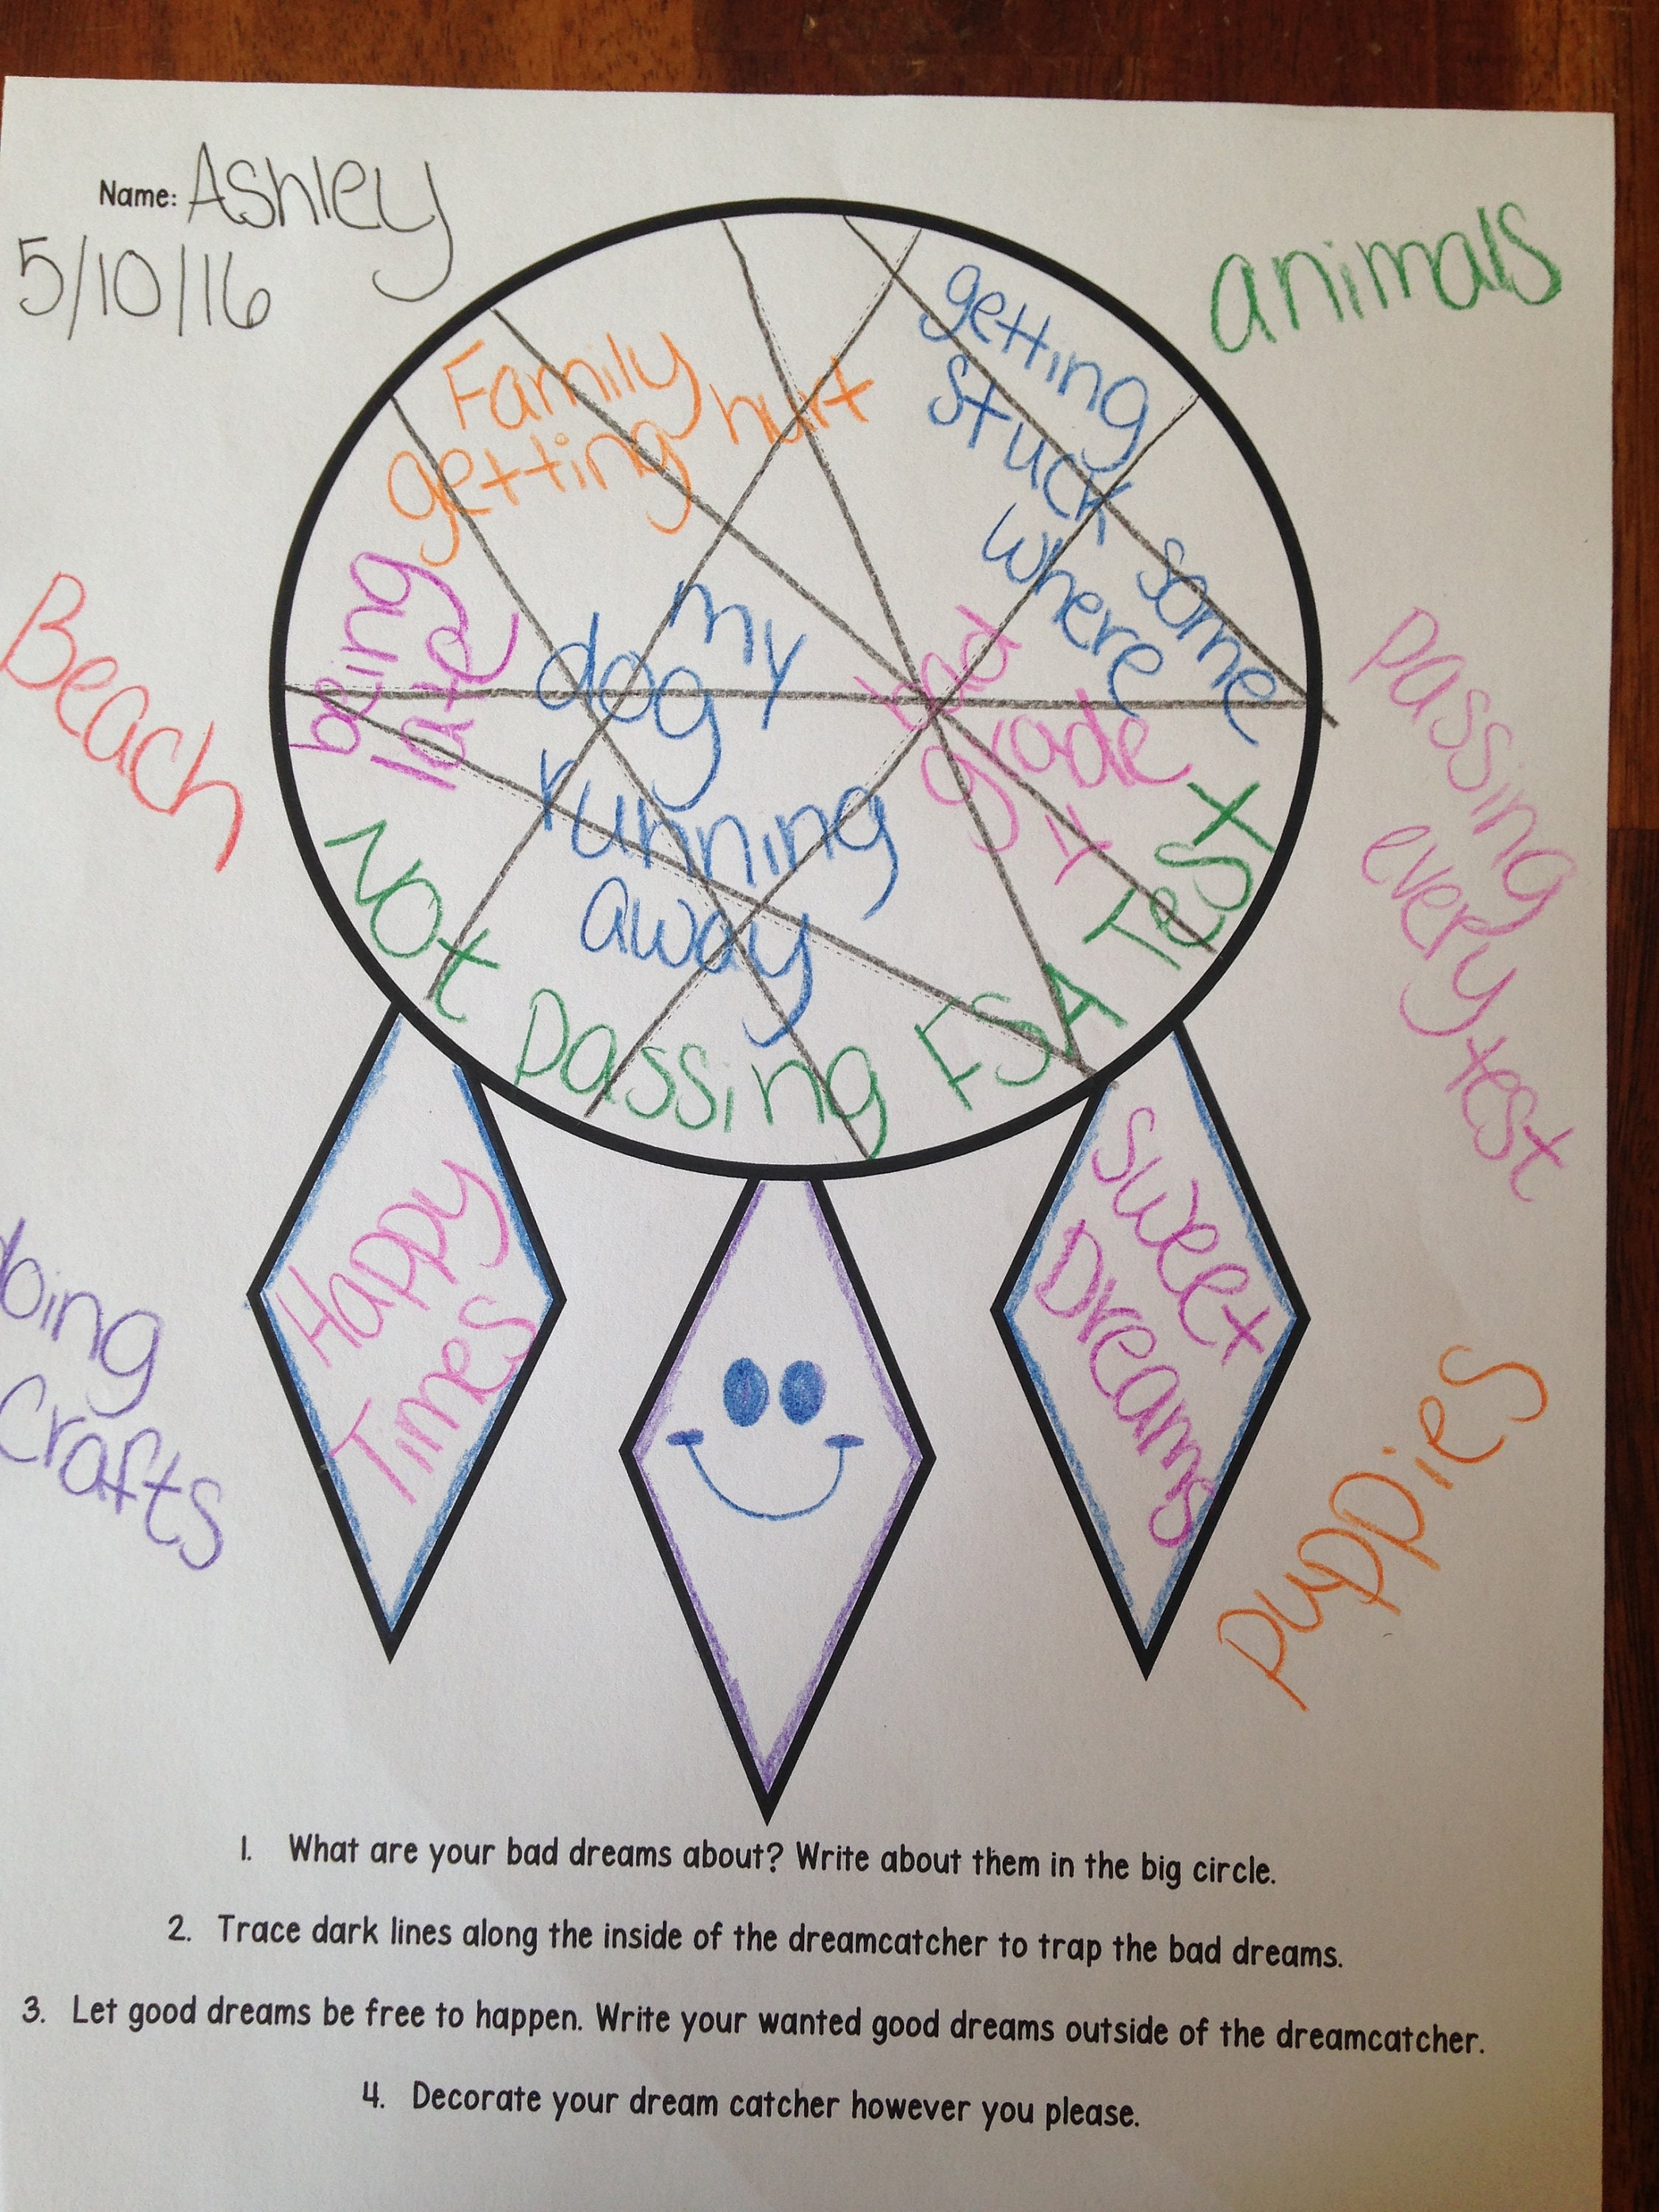 Name: Ashley
5/10/16
animals
Family
getting hurt
getting
stuck some
where
being
late
my
dog
running
away
bad
grade
Not passing FSA Test
Beach
passing
every test
Doing
Crafts
Happy
Times
Sweet
Dreams
puppies
1. What are your bad dreams about? Write about them in the big circle.
2. Trace dark lines along the inside of the dreamcatcher to trap the bad dreams.
3. Let good dreams be free to happen. Write your wanted good dreams outside of the dreamcatcher.
4. Decorate your dream catcher however you please.